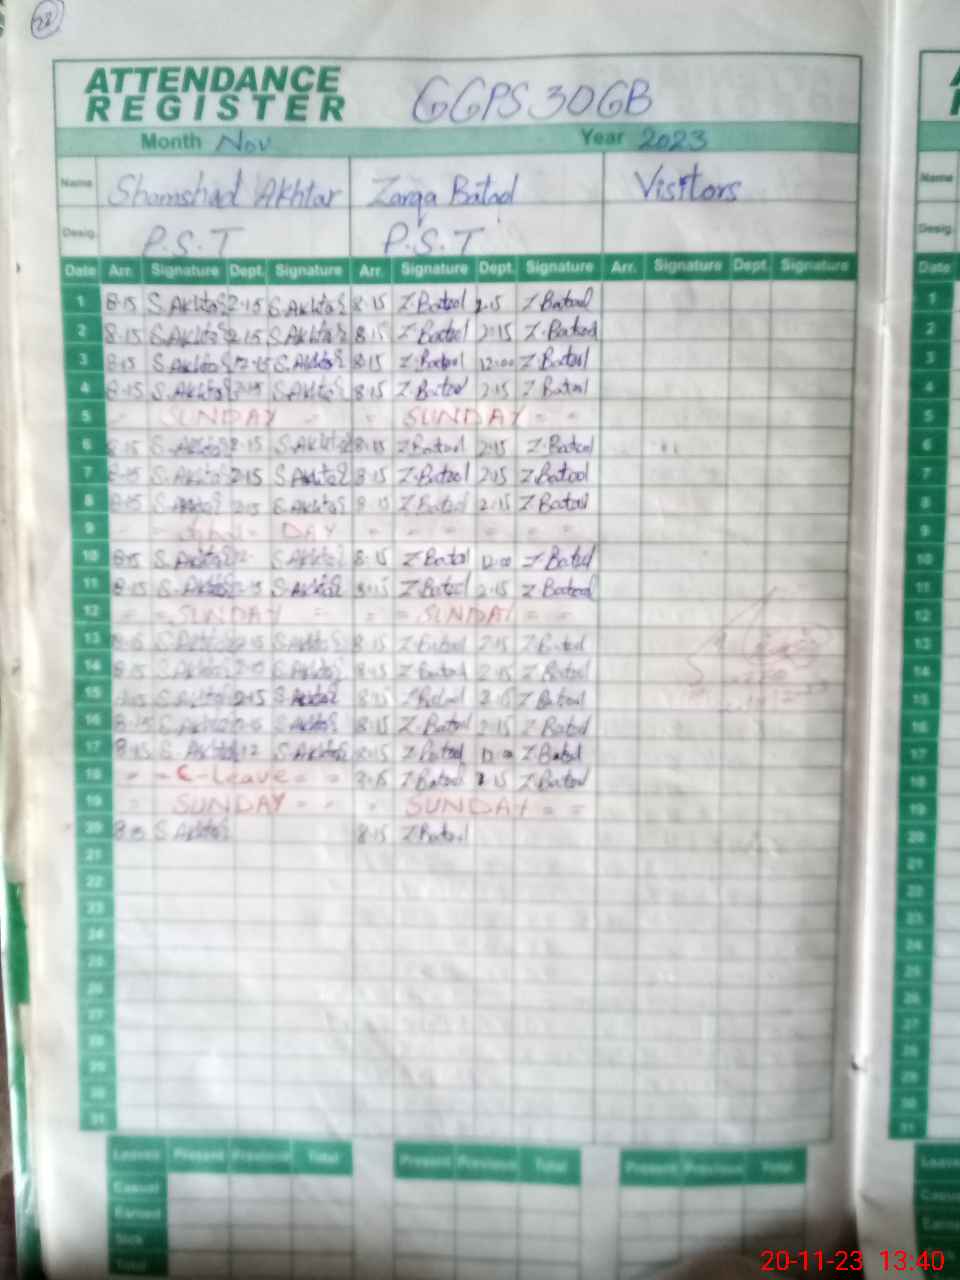 22
ATTENDANCE
REGISTER GGPS 30GB
Month Nov Year 2023
Name Shamshad Akhtar Zarqa Batool Visitors Name
Desig. P.S.T P.S.T Desig.
Date Arr. Signature Dept. Signature Arr. Signature Dept. Signature Arr. Signature Dept. Signature Date
1 8-15 S.Akhtar 2-15 S.Akhtar 8-15 Z.Batool 2-15 Z.Batool 1
2 8-15 S.Akhtar 2-15 S.Akhtar 8-15 Z.Batool 2-15 Z.Batool 2
3 8-15 S.Akhtar S.Akhtar 8-15 Z.Batool 12-00 Z.Batool 3
4 8-15 S.Akhtar 2-15 S.Akhtar 8-15 Z.Batool 2-15 Z.Batool 4
5 SUNDAY SUNDAY 5
6 8-15 S.Akhtar 2-15 S.Akhtar 8-15 Z.Batool 2-15 Z.Batool 6
7 8-15 S.Akhtar 2-15 S.Akhtar 8-15 Z.Batool 2-15 Z.Batool 7
8 8-15 S.Akhtar 2-15 S.Akhtar 8-15 Z.Batool 2-15 Z.Batool 8
9 DAY 9
10 8-15 S.Akhtar S.Akhtar 8-15 Z.Batool 12-00 Z.Batool 10
11 8-15 S.Akhtar S.Akhtar 8-15 Z.Batool 2-15 Z.Batool 11
12 SUNDAY SUNDAY 12
13 S.Akhtar 2-15 S.Akhtar 8-15 Z.Batool 2-15 Z.Batool 13
14 8-15 S.Akhtar S.Akhtar 8-15 Z.Batool 2-15 Z.Batool 14
15 8-15 S.Akhtar 2-15 S.Akhtar 8-15 Z.Batool Z.Batool 15
16 8-15 S.Akhtar S.Akhtar 8-15 Z.Batool 2-15 Z.Batool 16
17 8-15 S.Akhtar 12 S.Akhtar 8-15 Z.Batool Z.Batool 17
18 C-Leave Z.Batool 2-15 Z.Batool 18
19 SUNDAY SUNDAY 19
20 S.Akhtar 8-15 Z.Batool 20
21 21
22 22
23 23
24 24
25 25
26 26
27 27
28 28
29 29
30 30
31 31
Leaves Present Previous Total Present Previous Total Present Previous Total Leaves
Casual Casual
Earned
Sick
Total
20-11-23 13:40